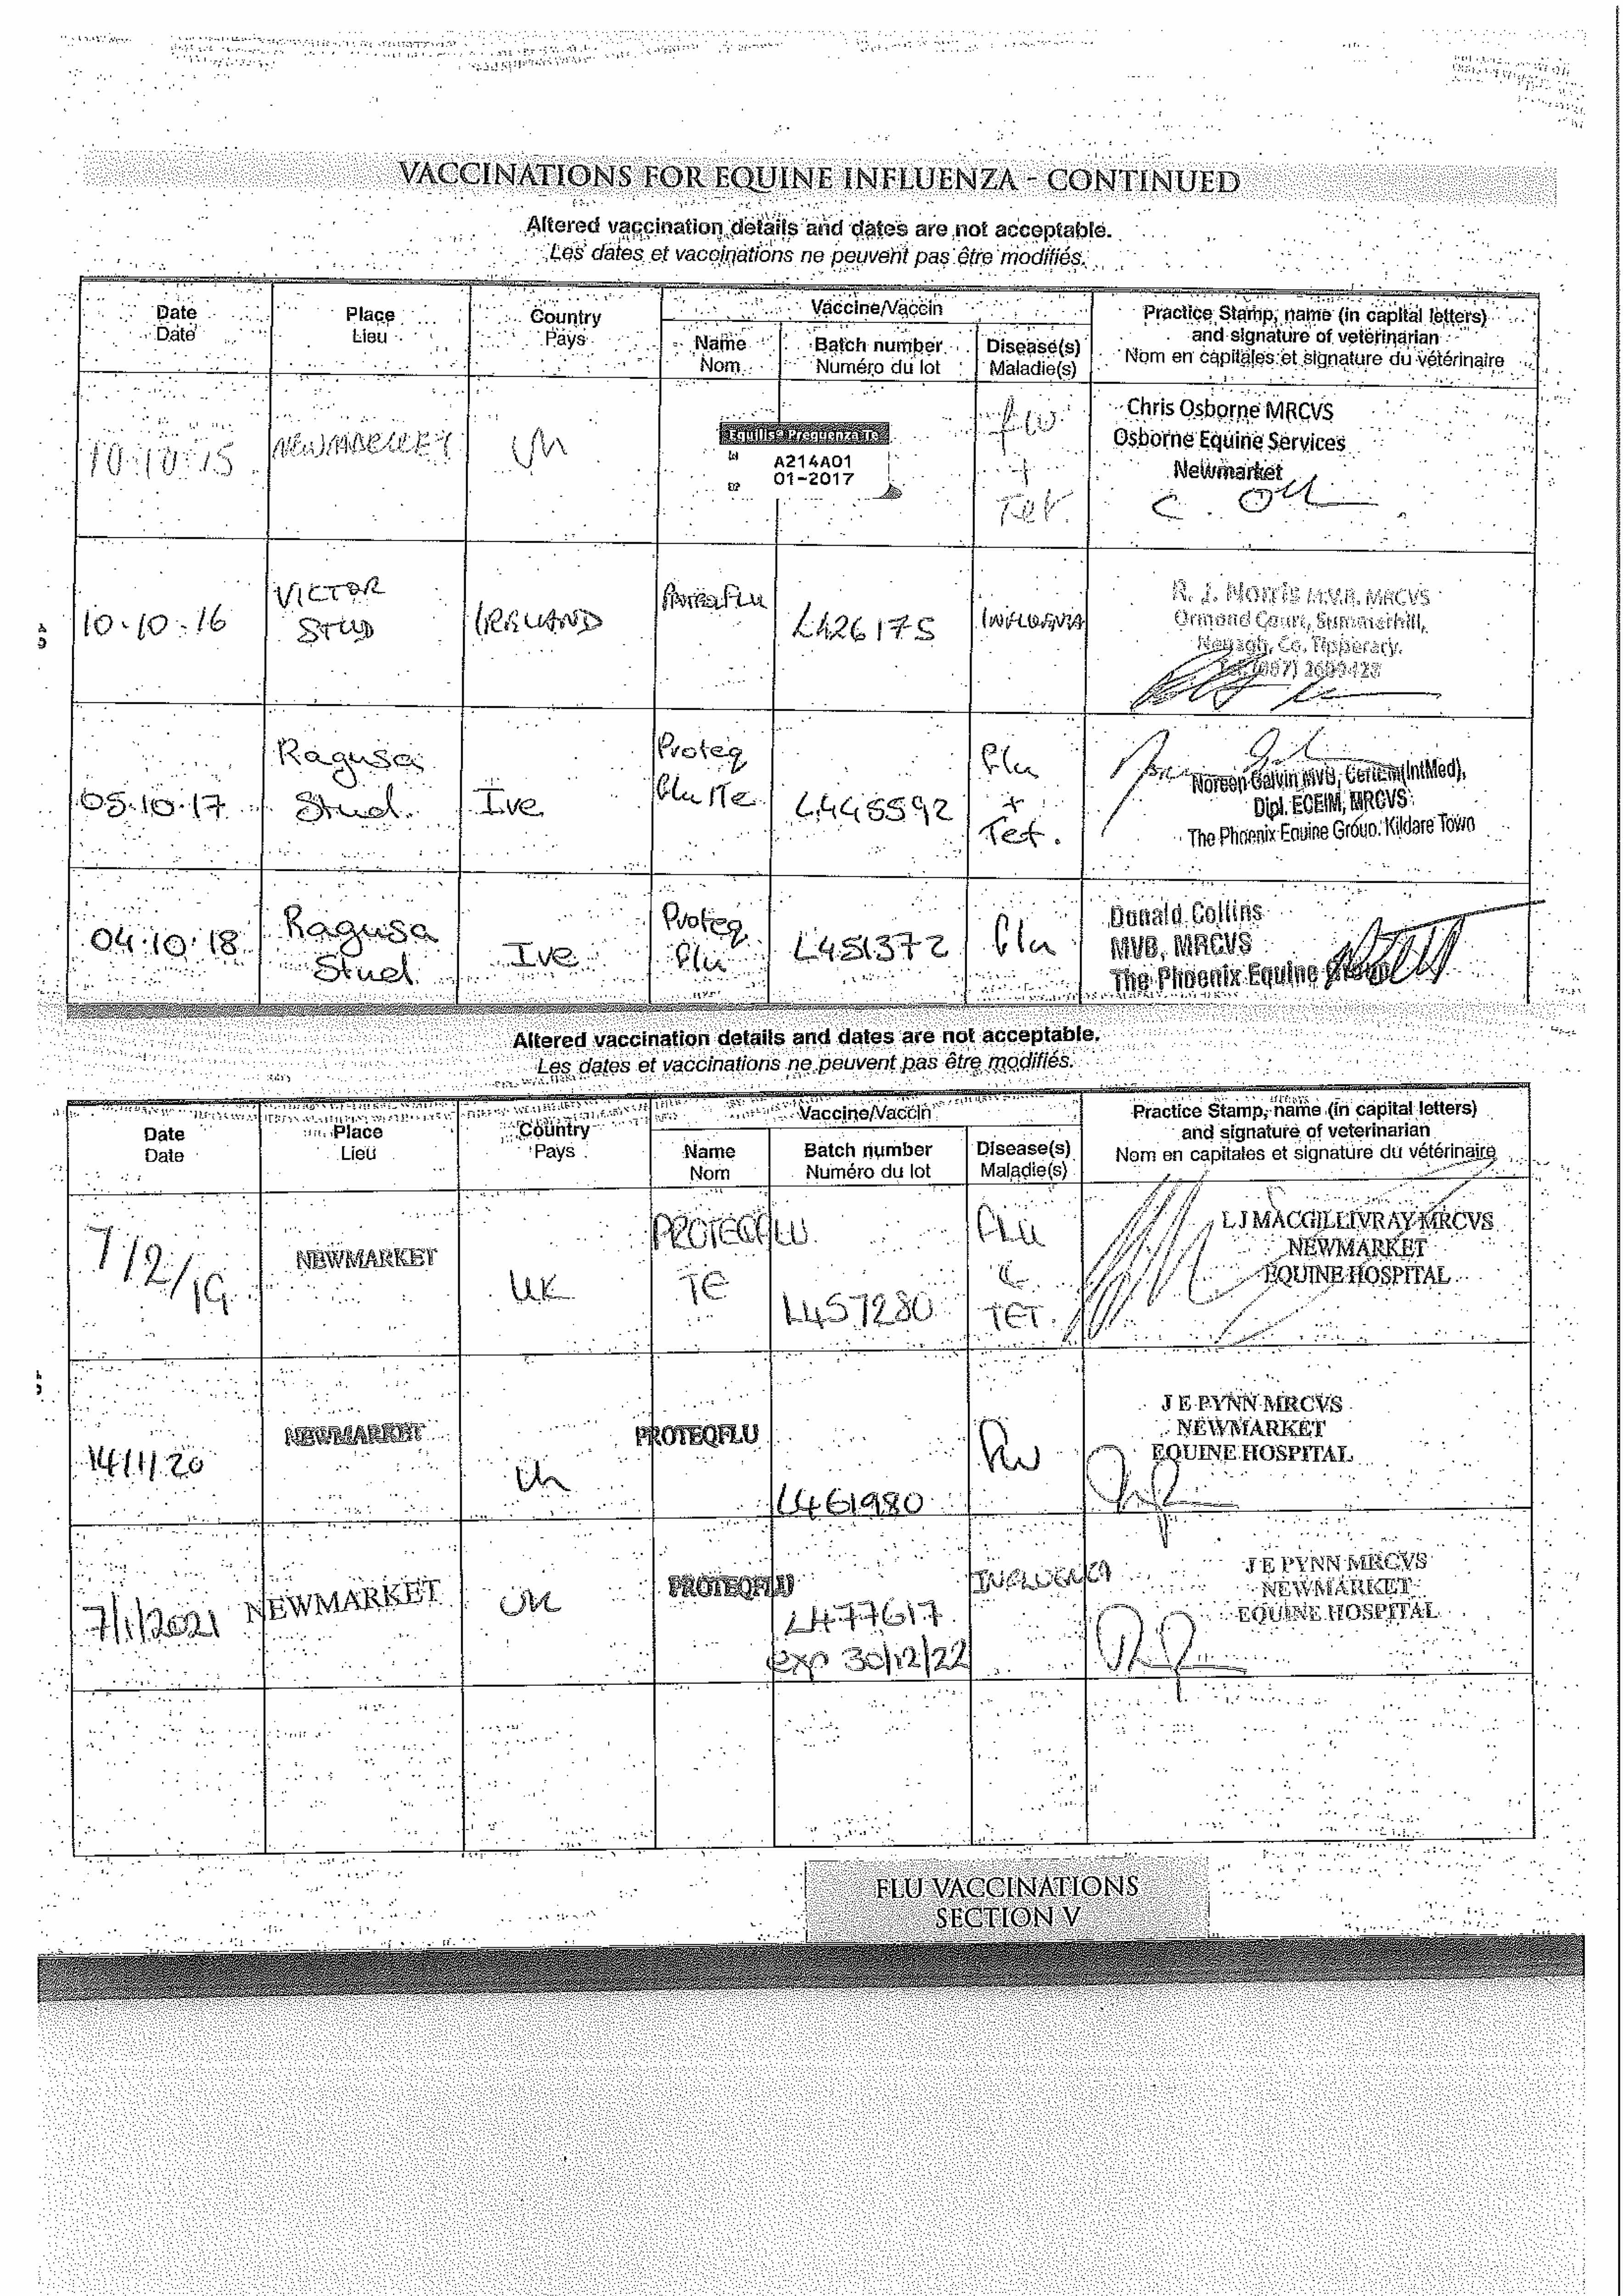 VACCINATIONS FOR EQUINE INFLUENZA - CONTINUED
Altered vaccination details and dates are not acceptable.
Les dates et vaccinations ne peuvent pas être modifiés.
Date Place Country Vaccine/Vaccin Practice Stamp, name (in capital letters)
Date Lieu Pays Name Batch number Disease(s) and signature of veterinarian
Nom Numéro du lot Maladie(s) Nom en capitales et signature du vétérinaire
10.10.15 NEWMARKET UK Equilis® Prequenza Te flu Chris Osborne MRCVS
A214A01 + Osborne Equine Services
01-2017 Tet. Newmarket
10.10.16 VICTOR IRELAND L426175 INFLUENZA R. J. Norris M.V.B. MRCVS
STUD Ormond Court, Summerhill,
Nenagh, Co. Tipperary.
05.10.17 Ragusa Ire Proteq L445592 Flu Noreen Galvin MVB, CertEM(IntMed),
Stud. Flu Te + Dipl. ECEIM, MRCVS
Tet. The Phoenix Equine Group. Kildare Town
04.10.18 Ragusa Ire Proteq L451372 Flu Donald Collins
Stud Flu MVB, MRCVS
The Phoenix Equine Group
Altered vaccination details and dates are not acceptable.
Les dates et vaccinations ne peuvent pas être modifiés.
Date Place Country Vaccine/Vaccin Practice Stamp, name (in capital letters)
Date Lieu Pays Name Batch number Disease(s) and signature of veterinarian
Nom Numéro du lot Maladie(s) Nom en capitales et signature du vétérinaire
7/2/19 NEWMARKET UK PROTEQFLU FLU L J MACGILLIVRAY MRCVS
TE & NEWMARKET
L457280 TET. EQUINE HOSPITAL
14/1/20 NEWMARKET UK PROTEQFLU Flu J E PYNN MRCVS
L461980 NEWMARKET
EQUINE HOSPITAL
7/1/2021 NEWMARKET UK PROTEQFLU INFLUENZA J E PYNN MRCVS
L477617 NEWMARKET
exp 30/12/22 EQUINE HOSPITAL
FLU VACCINATIONS
SECTION V